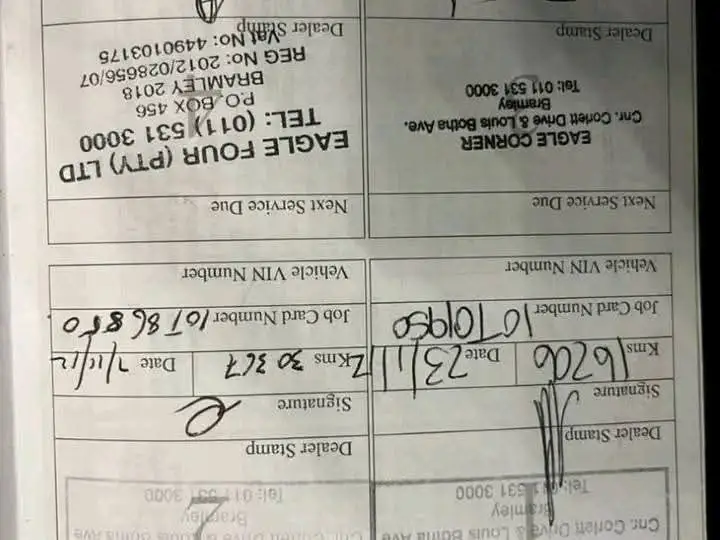 Cnr. Corlett Drive & Louis Botha Ave
Bramley
Tel: 011 531 3000
Dealer Stamp
Signature
Kms 16206 Date
Job Card Number 10T01950
Vehicle VIN Number
Next Service Due
EAGLE CORNER
Cnr. Corlett Drive & Louis Botha Ave.
Bramley
Tel: 011 531 3000
3
Dealer Stamp
Cnr. Corlett Drive & Louis Botha Ave
Bramley
Tel: 011 531 3000
Dealer Stamp
Signature
Kms 30 367 Date 7/11/12
Job Card Number
Vehicle VIN Number
Next Service Due
EAGLE FOUR (PTY) LTD
TEL: (011) 531 3000
P.O. BOX 456
BRAMLEY 2018
REG No: 2012/028656/07
Vat No: 4490103175
4
Dealer Stamp